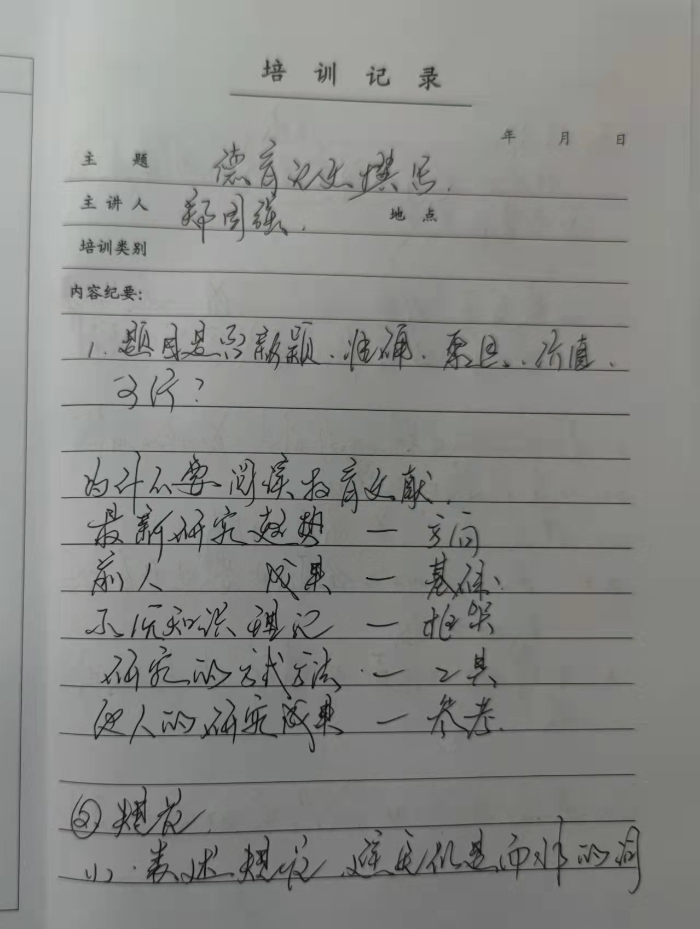 培训记录
年 月 日
主 题 德育论文撰写.
主讲人 郑国强. 地 点
培训类别
内容纪要:
1. 题目是否新颖、准确、价值、
可行?
为什么要阅读教育文献.
最新研究趋势 — 方向
前人 成果 — 基础.
知识 — 框架
研究的方式方法 — 工具
他人的研究成果 — 参考.
② 规范.
(1). 表述规范 是而非的词